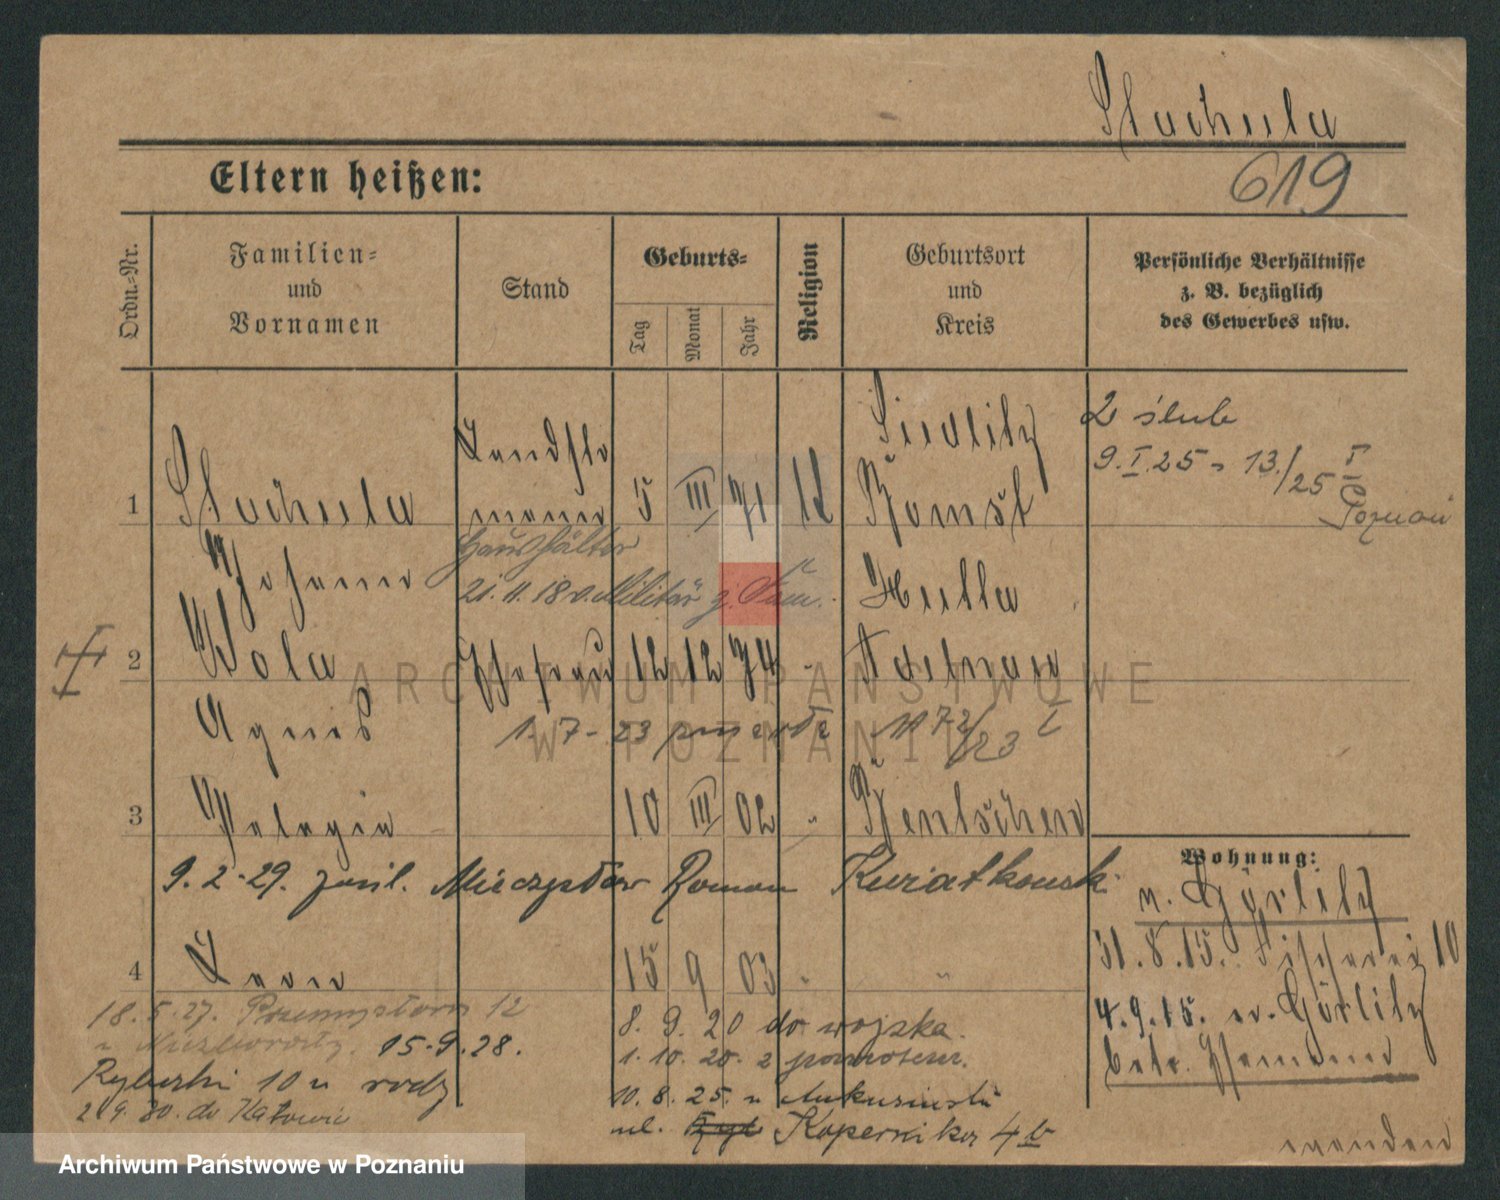 Stachula
619
Eltern heißen:
Ordn.-Nr.
Familien-
und
Vornamen
Stand
Geburts-
Tag
Monat
Jahr
Religion
Geburtsort
und
Kreis
Persönliche Verhältnisse
z. B. bezüglich
des Gewerbes usw.
1
Stachula
Johann
5 III 71
Siedlitz
Bomst
2 ślub
9.I.25 - 13./25 I
Poznań
Haushälter
21.11.18 v. Militär z.
2
Wola
Agnes
Ehefrau
12 12 74 "
Hutta
Adelnau
1.7-23 zmarła
3
Pelagia
10 III 02 "
Bentschen
9.2-29. zaśl. Mieczysław Roman Kwiatkowski
Wohnung:
n. Görlitz
31.8.15. Fischerei 10
4.9.15. n. Görlitz
betr. Ehemann
4
Leon
15 9 03 "
"
18.5.27. Przemysłowa 12
15.9.28.
Rybaki 10 u rodz
2.9.30. do Katowic
8. 9. 20 do wojska.
1. 10. 20. z powrotem.
10. 8. 25. u
ul. Kopernika 4 b
wenden
ARCHIWUM PAŃSTWOWE
W POZNANIU
Archiwum Państwowe w Poznaniu